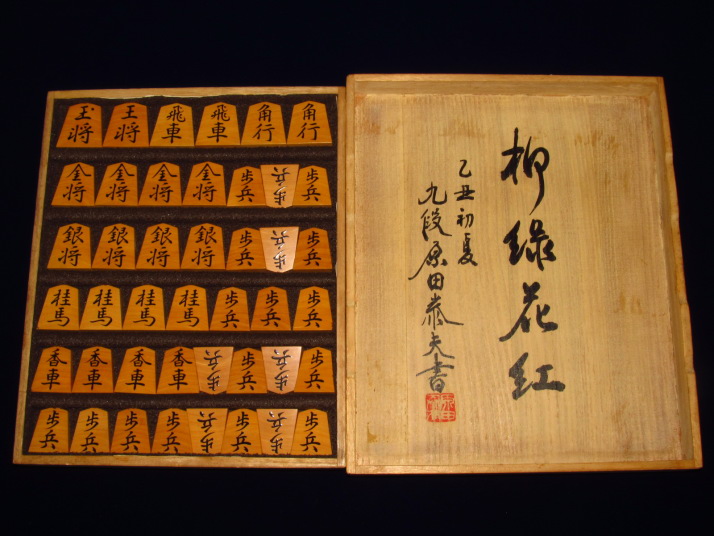 玉将 王将 飛車 飛車 角行 角行
金将 金将 金将 金将 歩兵 歩兵 歩兵
銀将 銀将 銀将 銀将 歩兵 歩兵 歩兵
桂馬 桂馬 桂馬 桂馬 歩兵 歩兵 歩兵
香車 香車 香車 香車 歩兵 歩兵 歩兵 歩兵
歩兵 歩兵 歩兵 歩兵 歩兵 歩兵 歩兵 歩兵
柳緑花紅
乙丑初夏
九段原田泰夫書